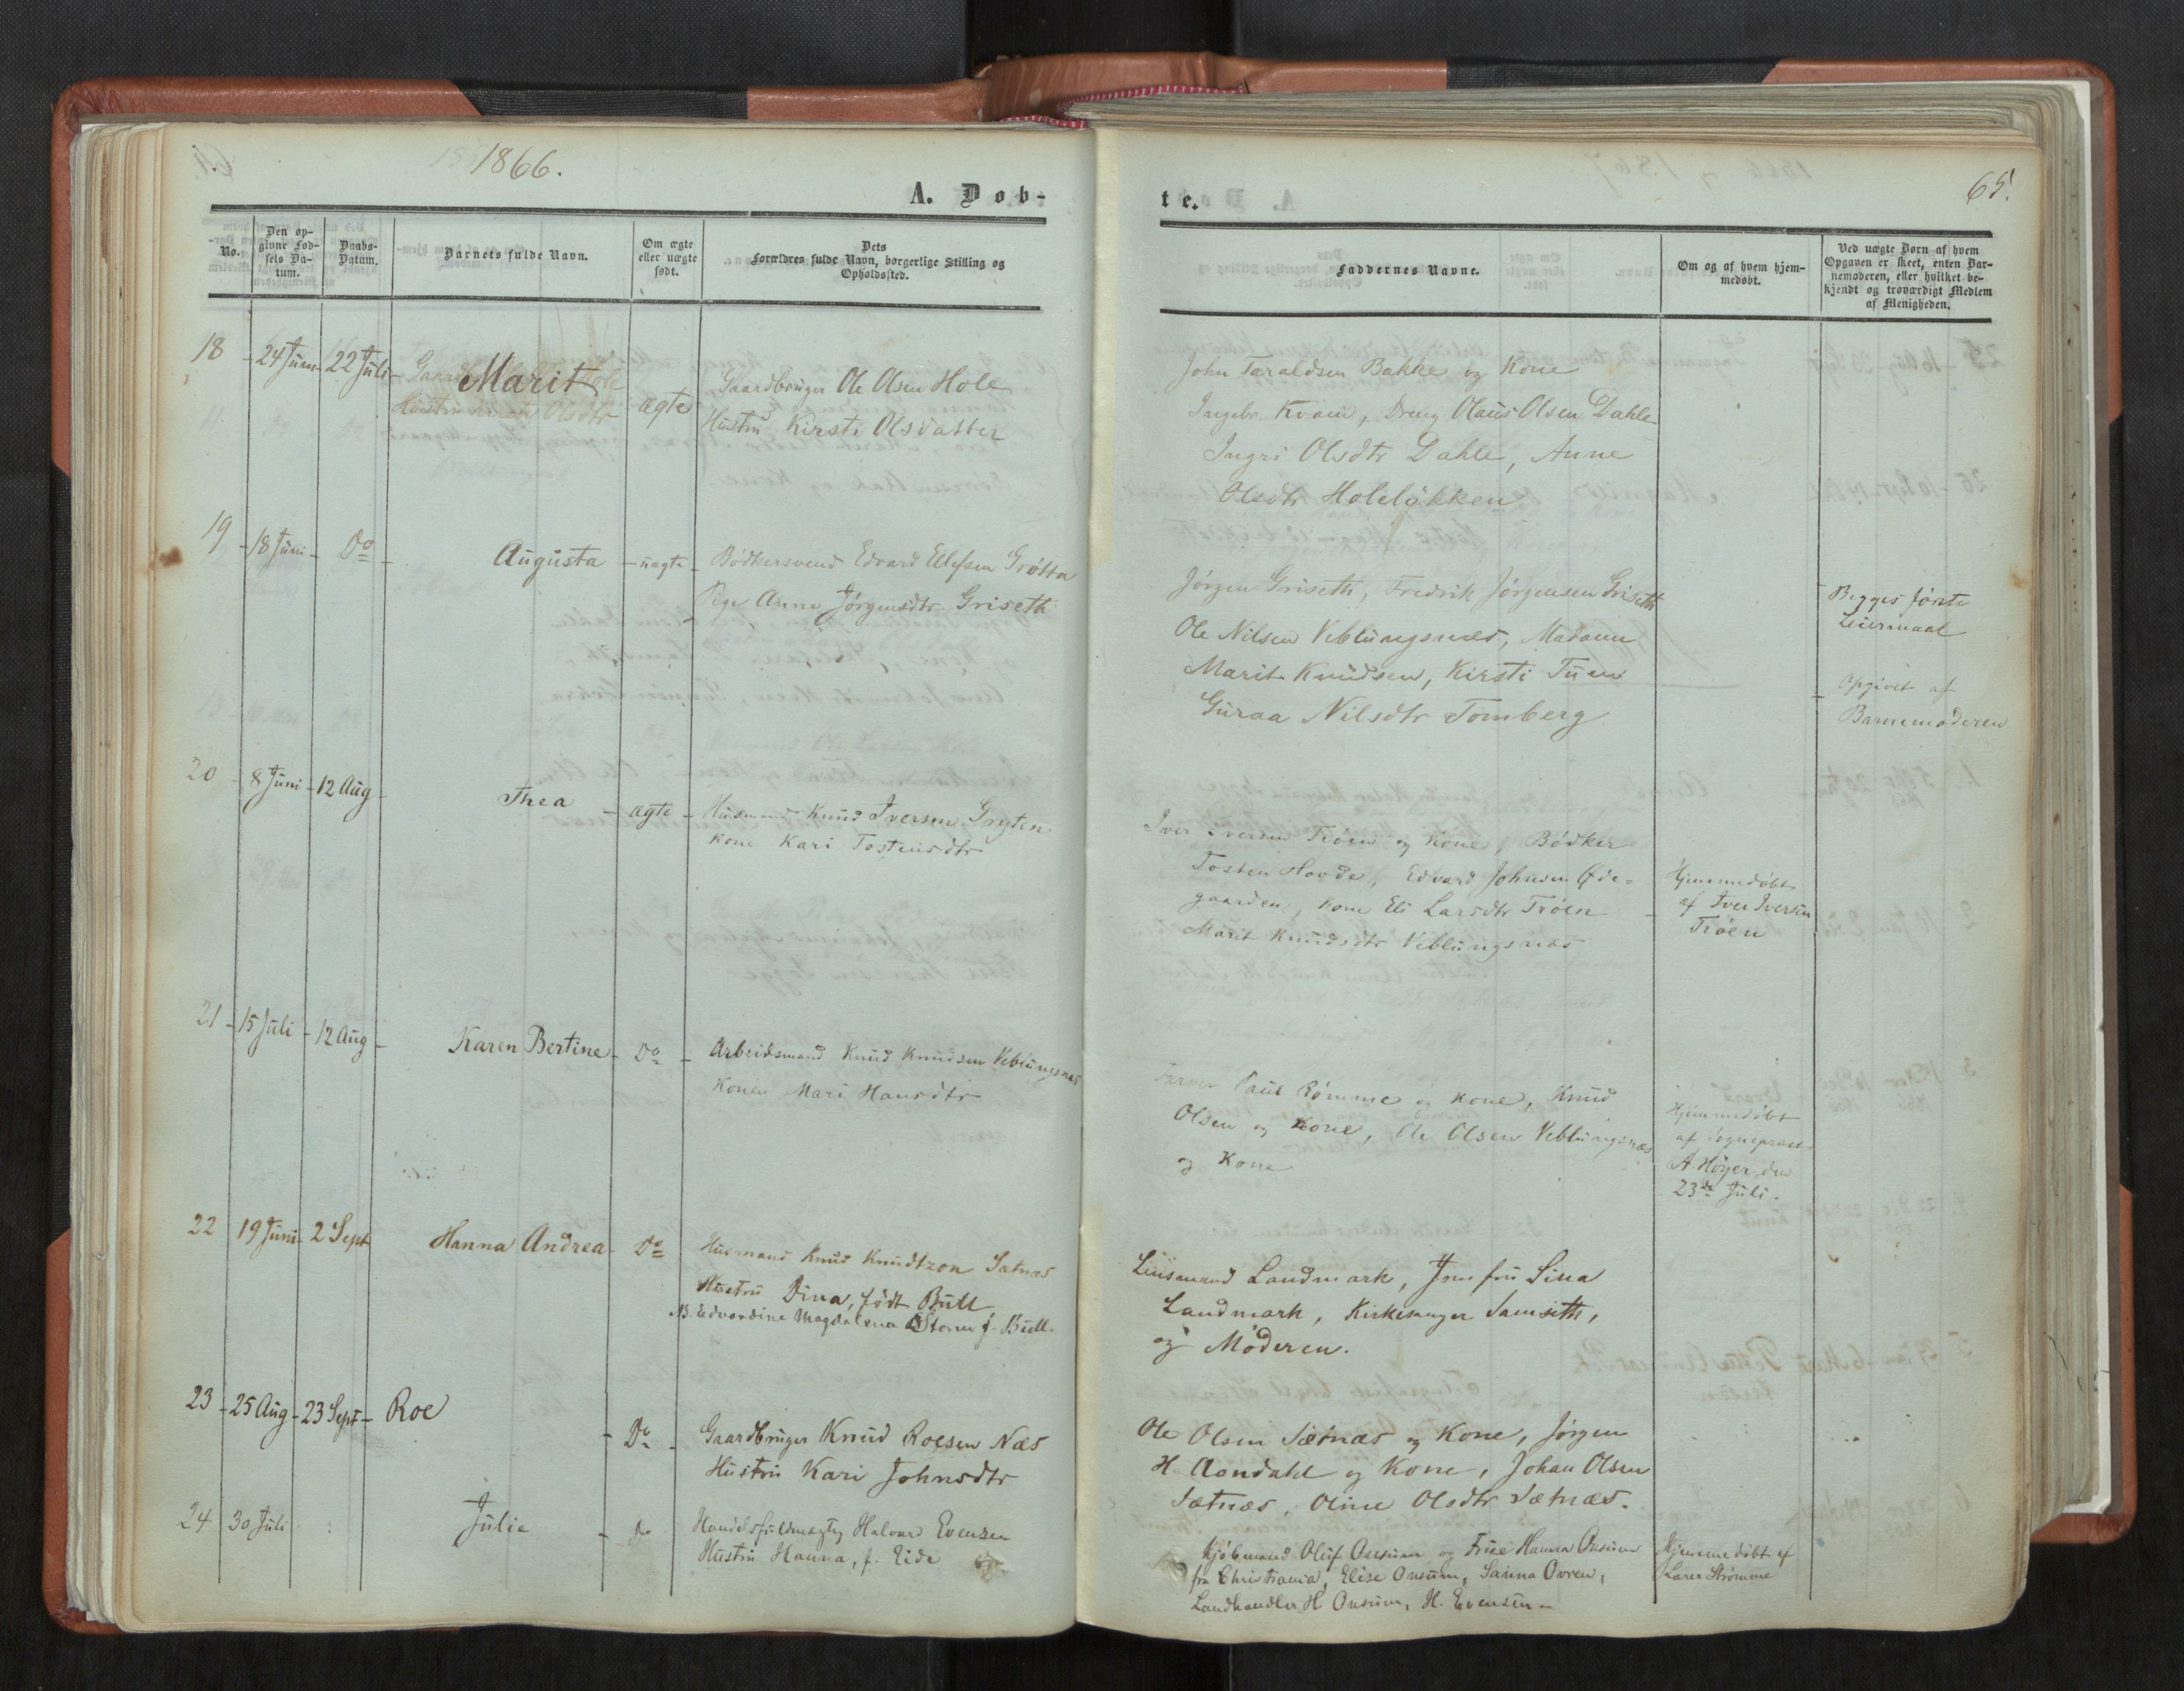 1866.
A. Døb-
No.
Den op-
givne Fød-
sels Da-
tum.
Daabs-
Datum.
Barnets fulde Navn.
Om ægte
eller uægte
født.
Dets
Forældres fulde Navn, borgerlige Stilling og
Opholdssted.
18 - 24 Juni - 22 Juli - Marit - ægte
Gaardbruger Ole Olsen Hole
Hustru Kirsti Olsdatter
19 - 18 Juni - Do - Augusta - uægte - Bødkersvend Edvard Ellefsen Grøtta
Pige Anne Jørgensdtr Griseth
20 - 8 Juni - 12 Aug - Thea - ægte - Husmand Knud Iversen Gryten
Kone Kari Tostensdtr
21 - 15 Juli - 12 Aug - Karen Bertine - Do - Arbeidsmand Knud Knudsen Veblungsnæs
Kone Mari Hansdtr
22 19 Juni - 2 Sept Hanna Andrea - Do Husmand Knud Knudtzon Sætnæs
Hustru Dina, født Bull
NB. Edvardine Magdalena Storm f. Bull.
23 - 25 Aug - 23 Sept - Roe - Do - Gaardbruger Knud Roesen Næs
Hustru Kari Johnsdtr
24 30 Juli Julie - Do Handelsfuldmægtig Halvard Evensen
Hustru Hanna, f. Eide
65.
te.
Faddernes Navne.
Om og af hvem hjem-
medøbt.
Ved uægte Børn af hvem
Opgaven er skeet, enten Bar-
nemoderen, eller hvilket be-
kjendt og troværdigt Medlem
af Menigheden.
John Taraldsen Bakke og Kone
Ingebr. Kvam, Dreng Olaus Olsen Dahle
Ingri Olsdtr Dahle, Anne
Olsdtr Holeløkken
Jørgen Griseth, Fredrik Jørgensen Griseth
Ole Nilsen Veblungsnæs, Madame
Marit Knudsen, Kirsti Tuen
Guraa Nilsdtr Tomberg
Begges første
Leiermaal
Opgivet af
Barnemoderen
Iver Iversen Trøen og Kone, Bødker
Tosten Hovde, Edvard Johnsen Øde-
gaarden, Kone Eli Larsdtr Trøen
Marit Knudsdtr Veblungsnæs
Hjemmedøbt
af Iver Iversen
Trøen
Farver Paul Rømme og Kone, Knud
Olsen og Kone, Ole Olsen Veblungsnæs
og Kone
Hjemmedøbt
af Sognepræst
A. Høyer den
23de Juli.
Lensmand Landmark, Jomfru Sina
Landmark, Kirkesanger Samseth,
og Moderen.
Ole Olsen Sætnæs og Kone, Jørgen
H. Aandahl og Kone, Johan Olsen
Sætnæs, Oline Olsdtr Sætnæs.
Kjøbmand Oluf Onsum og Frue Hanna Onsum
fra Christiania, Elise Onsum, Sanna Ovren,
Landhandler H Onsum, H. Evensen -
Hjemmedøbt af
Lærer Strømme